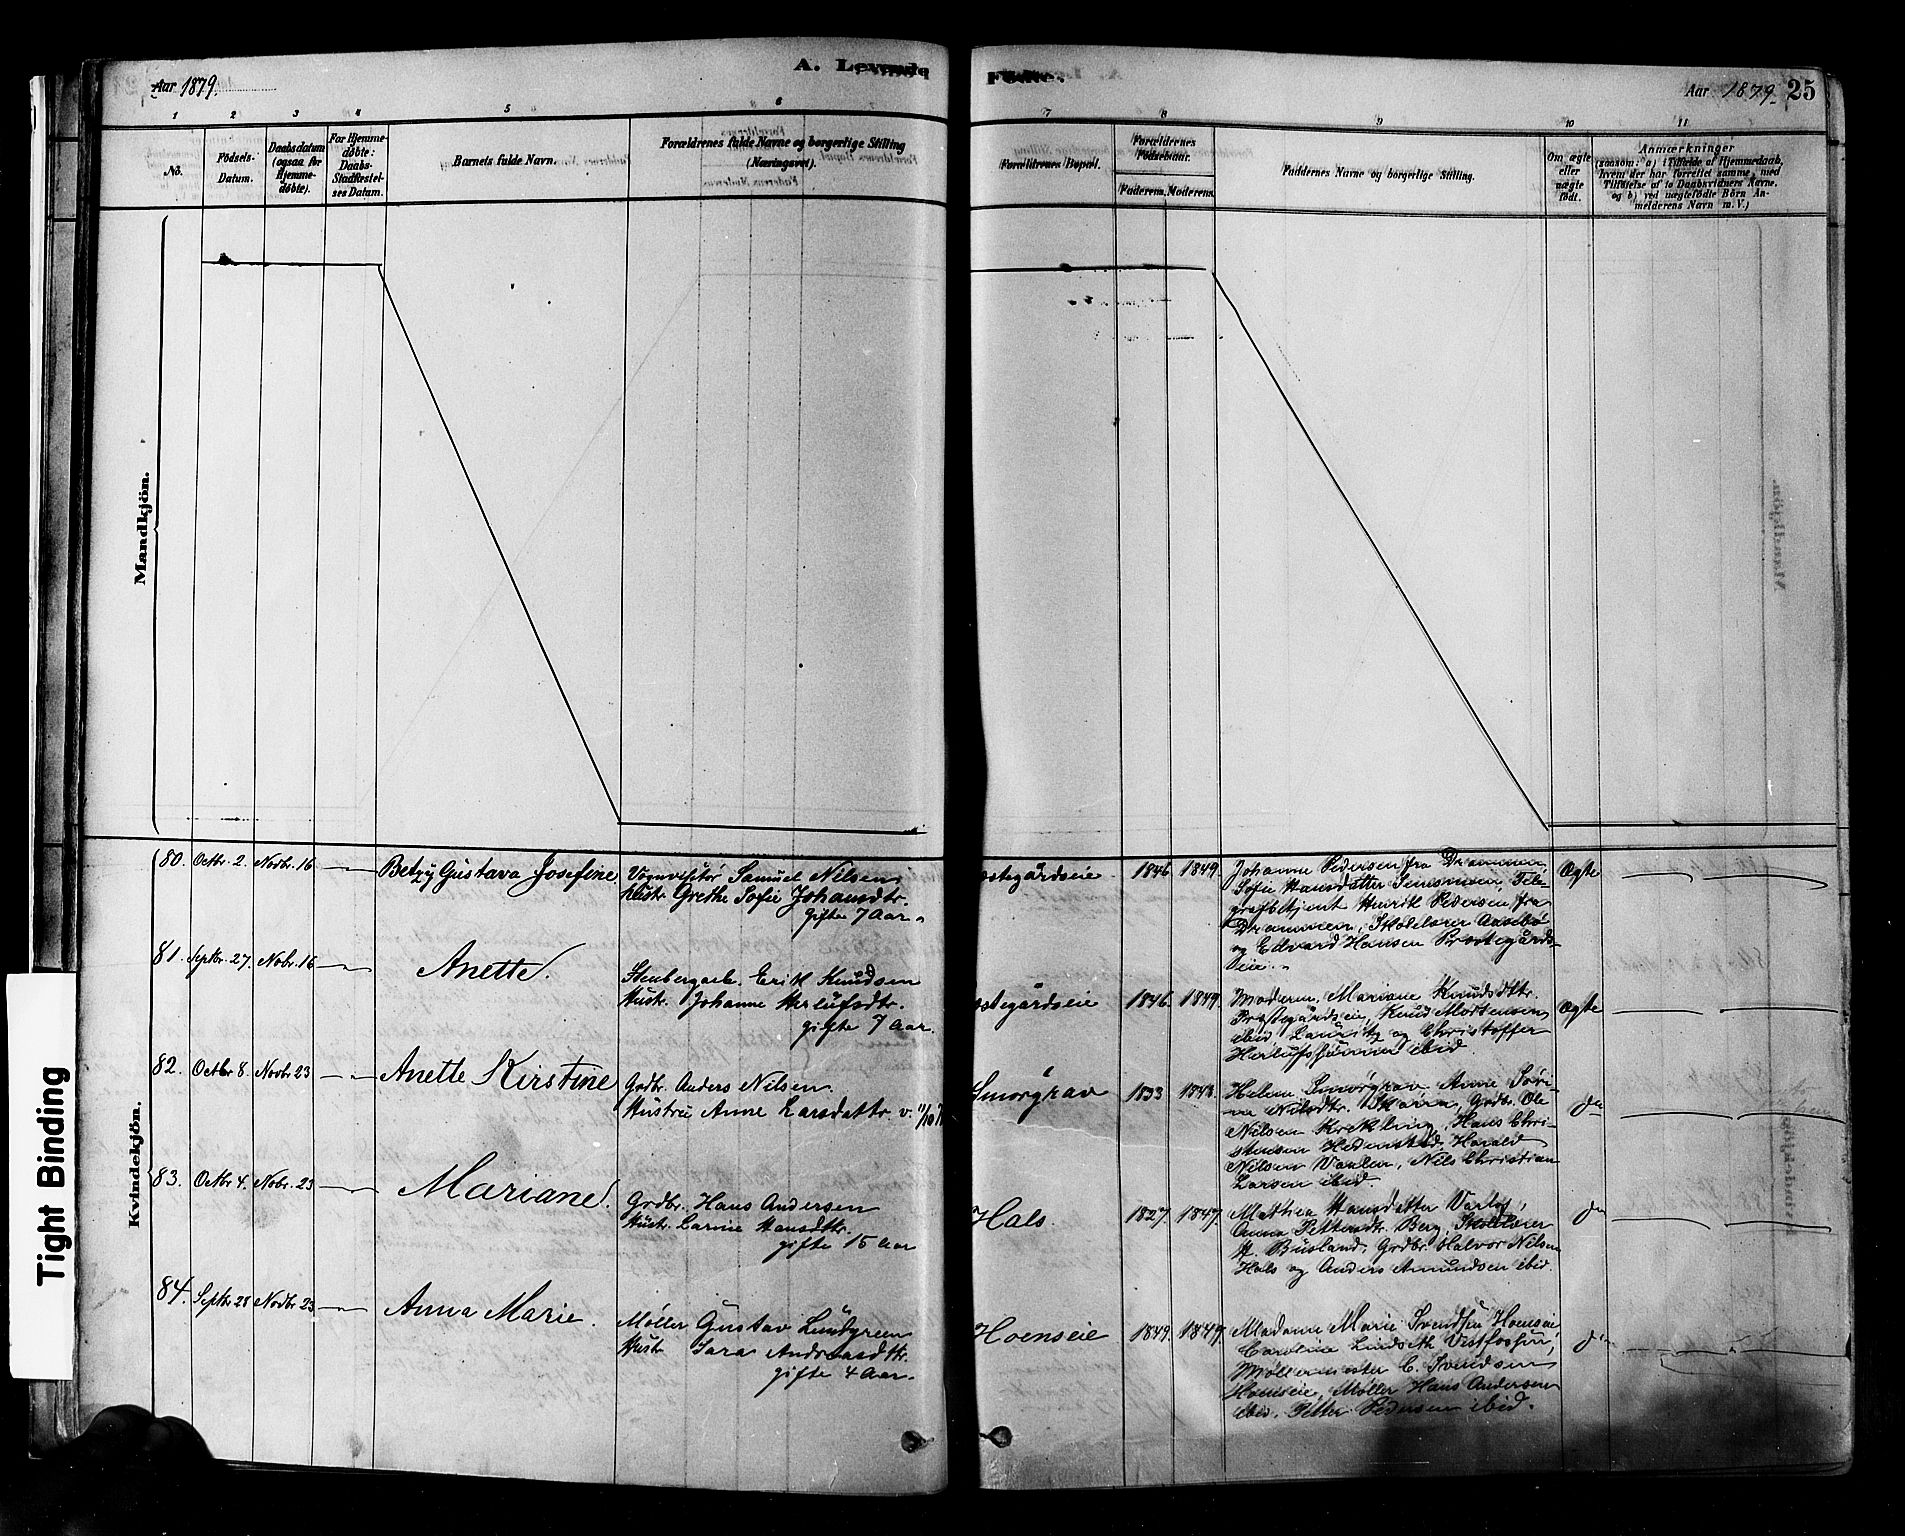 Aar 1879.
A. Levende
Fødte.
Aar 1879. 25
1 2 3 4 5 6
7 8 9 10 11
No.
Födsels-
Datum.
Daabsdatum
(ogsaa for
Hjemme-
døbte).
For Hjemme-
døbte:
Daabs-
Stadfæstel-
ses Datum.
Barnets fulde Navn.
Forældrenes fulde Navne og borgerlige Stilling
(Næringsvei).
Forældrenes Bopæl.
Forældrenes
Fødselsaar.
Faderens. Moderens.
Faddernes Navne og borgerlige Stilling.
Om ægte
eller
uægte
født.
Anmærkninger
(saasom: a) i Tilfælde af Hjemmedaab,
hvem der har forrettet samme, med
Tilføielse af to Daabsvidners Navne.
og b) ved uægtefødte Börn An-
melderens Navn m. V.)
Mandkjön.
Kvindekjön.
80. Octbr. 2. Novbr. 16 Betzy Gustava Josefine
Vognvisitør Samuel Nilsen
Hustr Grethe Sofie Johansdtr.
gifte 7 Aar.
stegårdseie 1846 1849
Johanne Pedersen fra Drammen,
Sofie Hansdatter Tele-
grafbetjent Henrik Pedersen fra
Drammen, Skolelærer Aasebø
og Edvard Hansen Præstegårds-
eie.
Ægte
81. Septbr. 27. Nobr. 16 Anette.
Stenbergarb. Erik Knudsen
Hustr. Johanne Herlufsdtr.
gifte 7 Aar.
stegårdseie 1846. 1849.
Moderen, Mariane Knudsdtr.
Præstegårdseie, Knud Mortensen
ibid, Lauritz og Christoffer
Herlufssønner ibid
Ægte
82. Octbr 8. Novbr 23 Anette Kirstine
Grdbr. Anders Nilsen
Hustru Anne Larsdattr. v. 11/10
Smørgrav 1833 1843.
Helene Smørgrav, Anne Søri-
ne Nilsdtr. Skara, Grdbr. Ole
Nilsen Krekling, Hans Chri-
stensen Hedenstad, Harald
Nilsen Vaalen, Nils Christian
Larsen ibid.
do
83. Octbr 4. Nobr. 23 Mariane.
Grdbr. Hans Andersen
Hustr. Larine Hansdttr.
gifte 15 Aar
Hals. 1827. 1847.
Mathea Hansdatter Varlo,
Anna Pettersdtr. Berg, Skolelærer
H. Busland, Grdbr. Halvor Nilsen
Hals og Anders Amundsen ibid.
do
84. Septbr 28 Novbr 23 Anna Marie.
Møller Gustav Lundgreen
Hustr Sara Andreasdttr.
gifte 4 Aar.
Hoenseie 1849. 1849
Madame Marie Svendsen Hoenseie
Caroline Lindseth Vestfossen,
Møllermester C. Svendsen
Hoenseie, Møller Hans Andersen
ibid. Petter Pedersen ibid.
do
Tight Binding